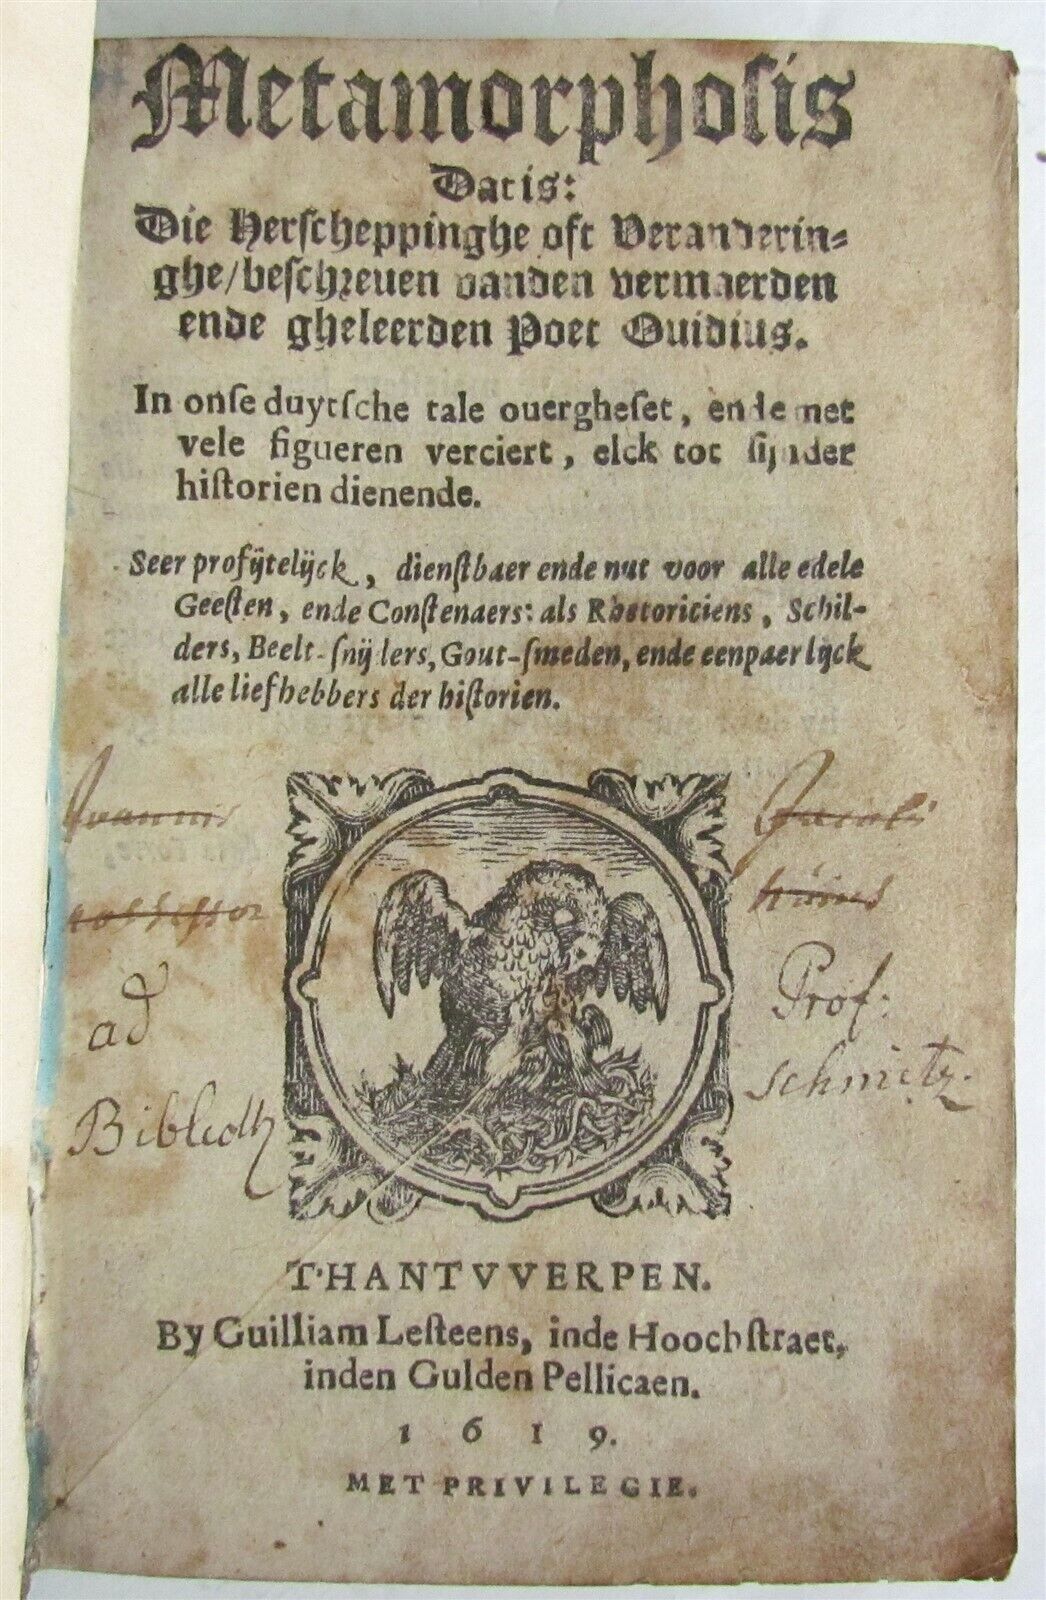 Metamorphosis
Dat is:
Die Herscheppinghe oft Veranderin=
ghe/beschreuen vanden vermaerden
ende gheleerden Poet Ouidius.
In onse duytsche tale ouergheset, ende met
vele figueren verciert, elck tot sijnder
historien dienende.
Seer profijtelijck, dienstbaer ende nut voor alle edele
Geesten, ende Constenaers: als Rhetoriciens, Schil-
ders, Beelt-snijders, Gout-smeden, ende eenpaerlijck
alle liefhebbers der historien.
Joannis
Jacobi
possessor
huius
ad
Prof:
Biblioth
schmitz.
T'HANTVVERPEN.
By Guilliam Lesteens, inde Hoochstraet,
inden Gulden Pellicaen.
1 6 1 9.
MET PRIVILEGIE.